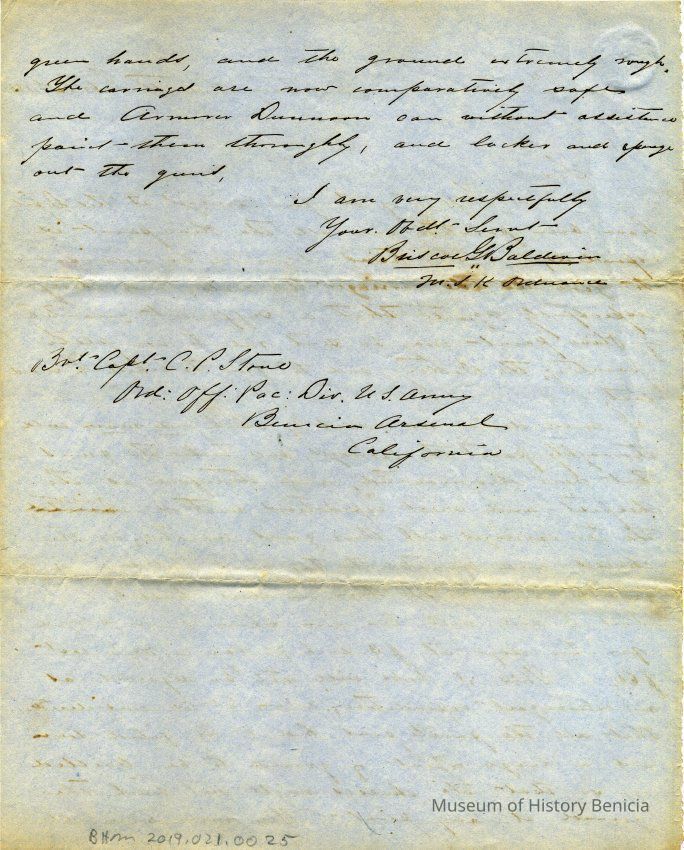 green hands, and the ground extremely rough.
The carriages are now comparatively safe
and Armorer Dunnoon can without assistance
paint them thoroughly, and lacker and sponge
out the guns.
I am very respectfully
Your. Obdt. Servt
Briscoe G Baldwin
M. S. K Ordnance
Bvt. Capt. C. P. Stone
Ord: Off: Pac: Div. U.S. Army
Benicia Arsenal
California
Museum of History Benicia
BHM 2019.021.0025